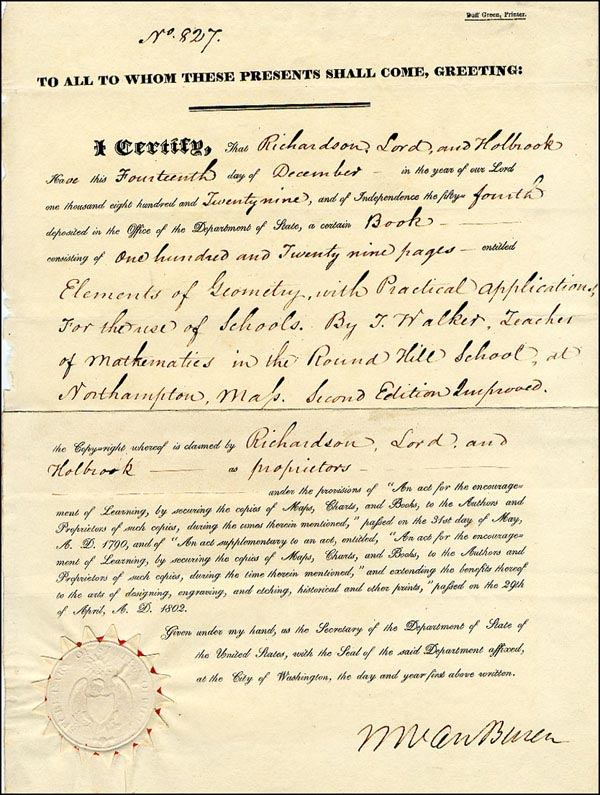 Duff Green, Printer.
No. 827.
TO ALL TO WHOM THESE PRESENTS SHALL COME, GREETING:
I Certify, That Richardson, Lord, and Holbrook
Have this Fourteenth day of December in the year of our Lord
one thousand eight hundred and Twenty nine, and of Independence the fifty= fourth
deposited in the Office of the Department of State, a certain Book
consisting of One hundred and Twenty nine pages entitled
Elements of Geometry, with Practical applications,
For the use of Schools. By T. Walker, Teacher
of Mathematics in the Round Hill School, at
Northampton, Mass. Second Edition Improved.
the Copy=right whereof is claimed by Richardson, Lord, and
Holbrook as proprietors
under the provisions of "An act for the encourage=
ment of Learning, by securing the copies of Maps, Charts, and Books, to the Authors and
Proprietors of such copies, during the times therein mentioned," passed on the 31st day of May,
A. D. 1790, and of "An act supplementary to an act, entitled, "An act for the encourage=
ment of Learning, by securing the copies of Maps, Charts, and Books, to the Authors and
Proprietors of such copies, during the time therein mentioned," and extending the benefits thereof
to the arts of designing, engraving, and etching, historical and other prints," passed on the 29th
of April, A. D. 1802.
Given under my hand, as the Secretary of the Department of State of
the United States, with the Seal of the said Department affixed,
at the City of Washington, the day and year first above written.
M Van Buren